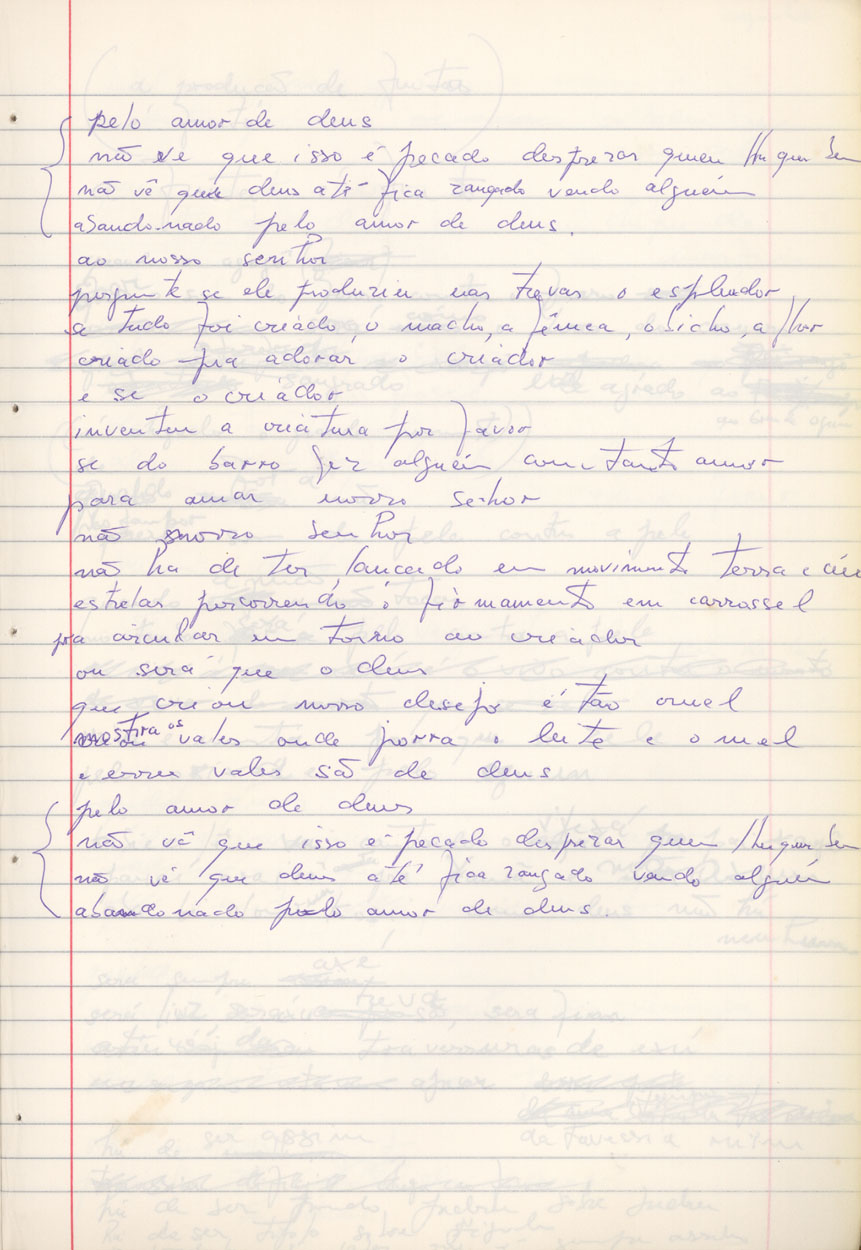 pelo amor de deus
não vê que isso é pecado desprezar quem lhe quer bem
não vê que deus até fica zangado vendo alguém
abandonado pelo amor de deus.
ao nosso senhor
pergunte se ele produziu nas trevas o esplendor
se tudo foi criado, o macho, a fêmea, o bicho, a flor
criado pra adorar o criador
e se o criador
inventou a criatura por favor
se do barro fez alguém com tanto amor
para amar nosso senhor
não nosso senhor
não há de ter lançado em movimento terra e céu
estrelas percorrendo o firmamento em carrossel
pra circular em torno ao criador
ou será que o deus
que criou nosso desejo é tão cruel
mostra os vales onde jorra o leite e o mel
e esses vales são de deus
pelo amor de deus
não vê que isso é pecado desprezar quem lhe quer bem
não vê que deus até fica zangado vendo alguém
abandonado pelo amor de deus.